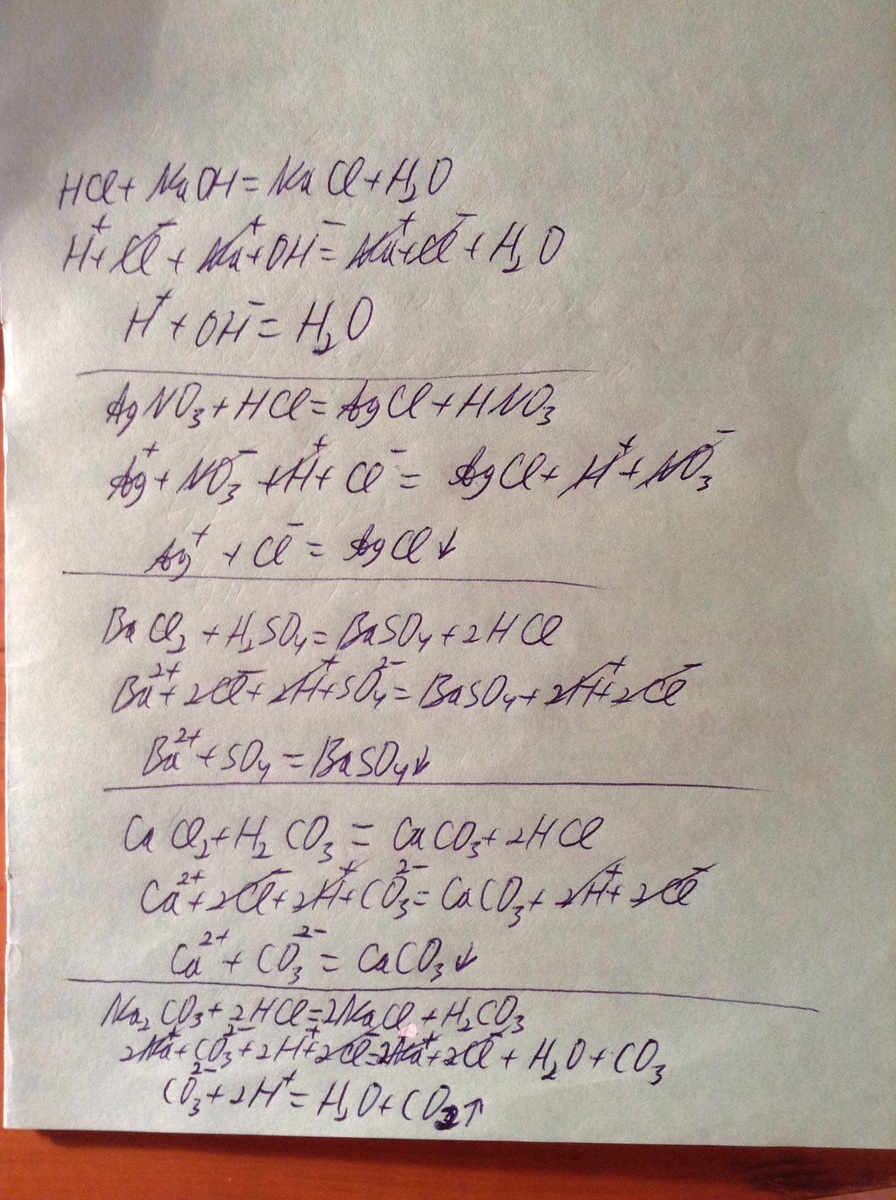 HCl + NaOH = NaCl + H₂O
H⁺ + Cl⁻ + Na⁺ + OH⁻ = Na⁺ + Cl⁻ + H₂O
H⁺ + OH⁻ = H₂O
AgNO₃ + HCl = AgCl + HNO₃
Ag⁺ + NO₃⁻ + H⁺ + Cl⁻ = AgCl + H⁺ + NO₃⁻
Ag⁺ + Cl⁻ = AgCl↓
BaCl₂ + H₂SO₄ = BaSO₄ + 2HCl
Ba²⁺ + 2Cl⁻ + 2H⁺ + SO₄²⁻ = BaSO₄ + 2H⁺ + 2Cl⁻
Ba²⁺ + SO₄ = BaSO₄↓
CaCl₂ + H₂CO₃ = CaCO₃ + 2HCl
Ca²⁺ + 2Cl⁻ + 2H⁺ + CO₃²⁻ = CaCO₃ + 2H⁺ + 2Cl⁻
Ca²⁺ + CO₃²⁻ = CaCO₃↓
Na₂CO₃ + 2HCl = 2NaCl + H₂CO₃
2Na⁺ + CO₃²⁻ + 2H⁺ + 2Cl⁻ = 2Na⁺ + 2Cl⁻ + H₂O + CO₃
CO₃²⁻ + 2H⁺ = H₂O + CO₂↑